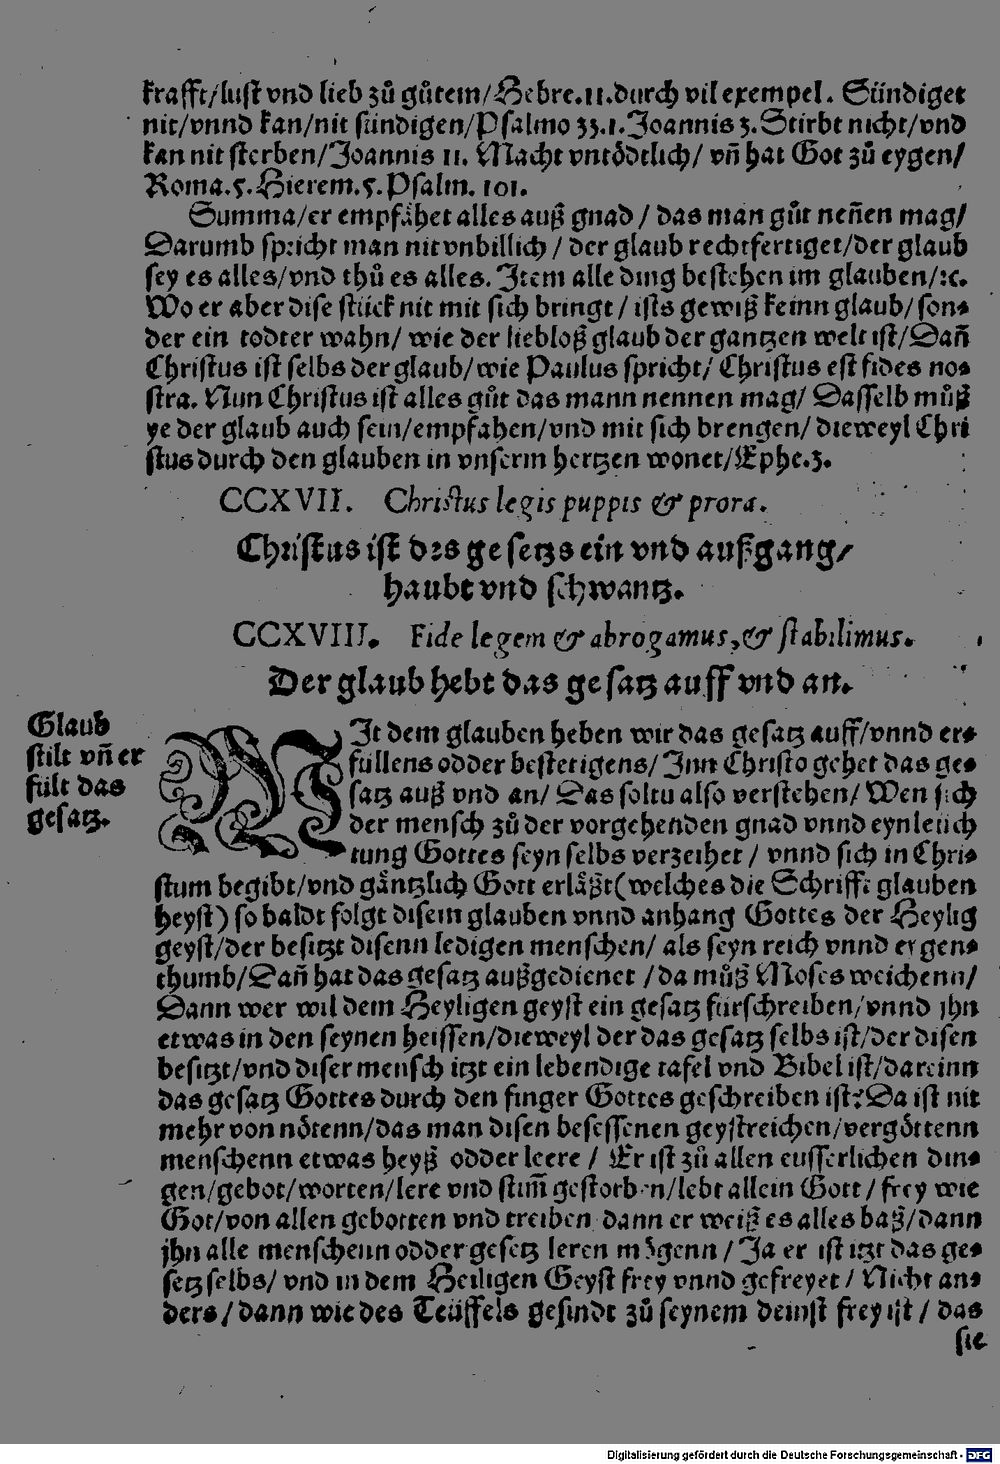 krafft/lust vnd lieb zů gůtem/Hebre.11.durch vil exempel. Sündiget
nit/vnnd kan/nit sündigen/Psalmo 33.1.Joannis 3.Stirbt nicht/vnd
kan nit sterben/Joannis 11. Macht vntödtlich/ vñ hat Got zů eygen/
Roma.5.Hierem.5.Psalm. 101.
Summa/er empfähet alles auß gnad / das man gůt neñen mag/
Darumb spricht man nit vnbillich / der glaub rechtfertiget/der glaub
sey es alles/vnd thů es alles. Item alle ding bestehen im glauben/ꝛc.
Wo er aber dise stück nit mit sich bringt / ists gewiß keinn glaub/son⸗
der ein todter wahn/ wie der liebloß glaub der gantzen welt ist/Dañ
Christus ist selbs der glaub/wie Paulus spricht/ Christus est fides no⸗
stra. Nun Christus ist alles gůt das mann nennen mag/ Dasselb můß
ye der glaub auch sein/empfahen/vnd mit sich brengen/ dieweyl Chri
stus durch den glauben in vnserm hertzen wonet/Ephe.3.
CCXVII. Christus legis puppis & prora.
Christus ist des gesetzs ein vnd außgang/
haubt vnd schwantz.
CCXVIII. Fide legem & abrogamus, & stabilimus.
Der glaub hebt das gesatz auff vnd an.
Glaub
stilt vñ er
fült das
gesatz.
MIt dem glauben heben wir das gesatz auff/vnnd er⸗
füllens odder bestetigens/ Inn Christo gehet das ge⸗
satz auß vnd an/ Das soltu also verstehen/ Wen sich
der mensch zů der vorgehenden gnad vnnd eynleuch
tung Gottes seyn selbs verzeihet / vnnd sich in Chri⸗
stum begibt/vnd gäntzlich Gott erläßt(welches die Schrifft glauben
heyst) so baldt folgt disem glauben vnnd anhang Gottes der Heylig
geyst/der besitzt disenn ledigen menschen/ als seyn reich vnnd eygen⸗
thumb/Dañ hat das gesatz außgedienet /da můß Moses weichenn/
Dann wer wil dem Heyligen geyst ein gesatz fürschreiben/vnnd jhn
etwas in den seynen heissen/dieweyl der das gesatz selbs ist/der disen
besitzt/vnd diser mensch itzt ein lebendige tafel vnd Bibel ist/dareinn
das gesatz Gottes durch den finger Gottes geschreiben ist? Da ist nit
mehr von nötenn/das man disen besessenen geystreichen/vergöttenn
menschenn etwas heyß odder leere / Er ist zů allen eusserlichen din⸗
gen/gebot/worten/lere vnd stim̃ gestorben/lebt allein Gott / frey wie
Got/von allen gebotten vnd treiben dann er weiß es alles baß/dann
jhn alle menschenn odder gesetz leren mögenn / Ja er ist itzt das ge⸗
setz selbs/ vnd in dem Heiligen Geyst frey vnnd gefreyet / Nicht an⸗
ders / dann wie des Teüffels gesindt zů seynem deinst frey ist / das
sie
Digitalisierung gefördert durch die Deutsche Forschungsgemeinschaft - DFG